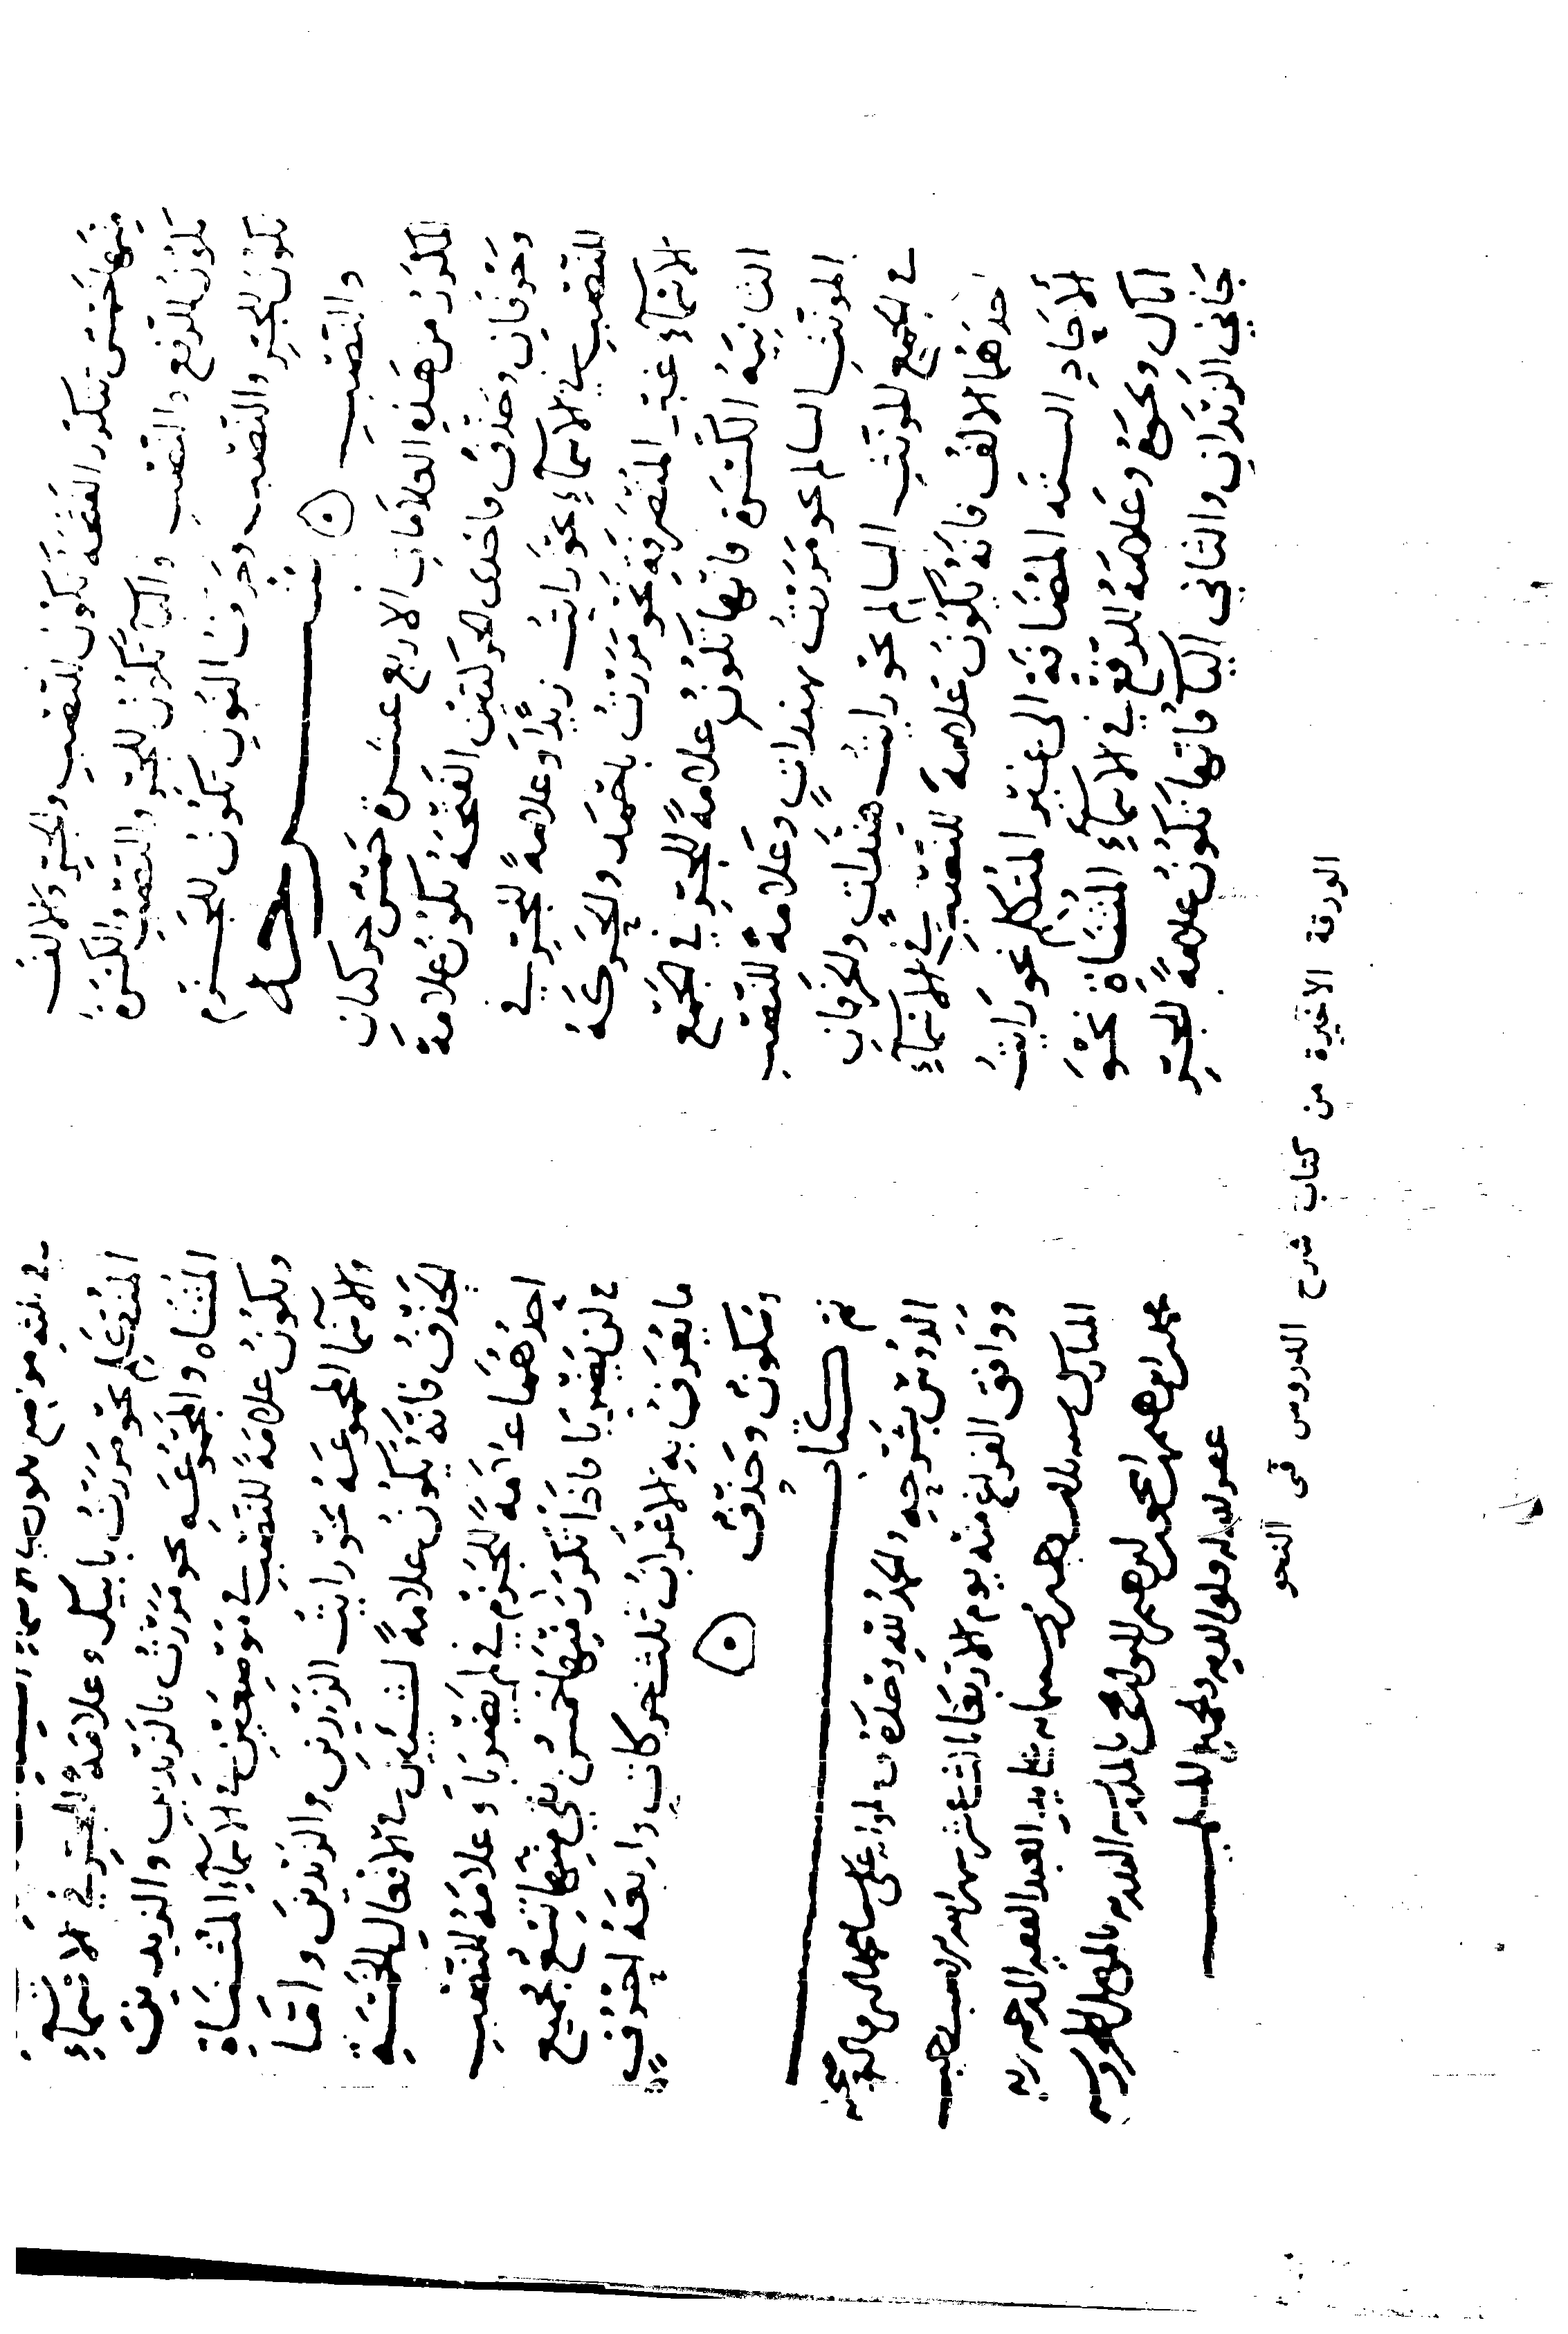 منها خمس تتكرر الفتحة تكون للنصب والجر والالف
تكون للرفع والنصب والياء تكون للجر والنصب والكسرة
تكون للجر والنصب وحذف النون تكون للجزم
والنصب شرحه
المكرر من هذه العلامات الاربع عشرة خمس حركتان
وحرفان وحذف فاحدى الحركتين الفتحة تكون علامة
للنصب في الاسماء نحو رايت زيدا وعلامة للجر في
الاسماء غير المنصرفة نحو مررت باحمد والحركة
الثانية الكسرة فانها تكون علامة للجر في الجمع
المونث السالم نحو مررت بهندات وعلامة للنصب
في الجمع المونث السالم نحو رايت هندات والحرفان
احدهما الالف فانه يكون علامة للنصب في الاسماء
الاحاد الستة المضافة الى غير المتكلم نحو رايت
اباك ونحوه وعلامة للرفع في الاسماء المثناة نحو
جاني الزيدان والثاني اليا فانها تكون علامة للجر
في ثلثة مواضع تكون الاسماء الستة
المتقدم نحو مررت بابيك وعلامة للجر في الاسماء
المثناه والمجموعه نحو مررت بالزيدين والزيدين
وتكون علامة للنصب في موضعين في الاسماء المثناة
والاسما المجموعه نحو رايت الزيدين والزيدين واما
الحذف فانه يكون علامة لشيئين في الافعال الخمسة
احدهما علامة للجزم في لم يضربا وعلامة للنصب
في لن يضربا فاذا تكرر منها خمس بقي منها تسع فجميع
ما يعرف به الاعراب ثلث حركات واربعة احرف
وسكون وحذف
تم كتاب
الدروس بشرحه والحمد لله وحده وصلواته على سيدنا محمد النبي واله وصحبه
ووافق الفراغ منه يوم الاربعا تاسع عشر شهر الله رجب
المبارك سنه وستمايه العبد الفقير الى رحمة ربه
محمد بن ابرهيم بن
عفو الله له ولوالديه ولجميع المسلمين
الورقة الأخيرة من كتاب شرح الدروس في النحو